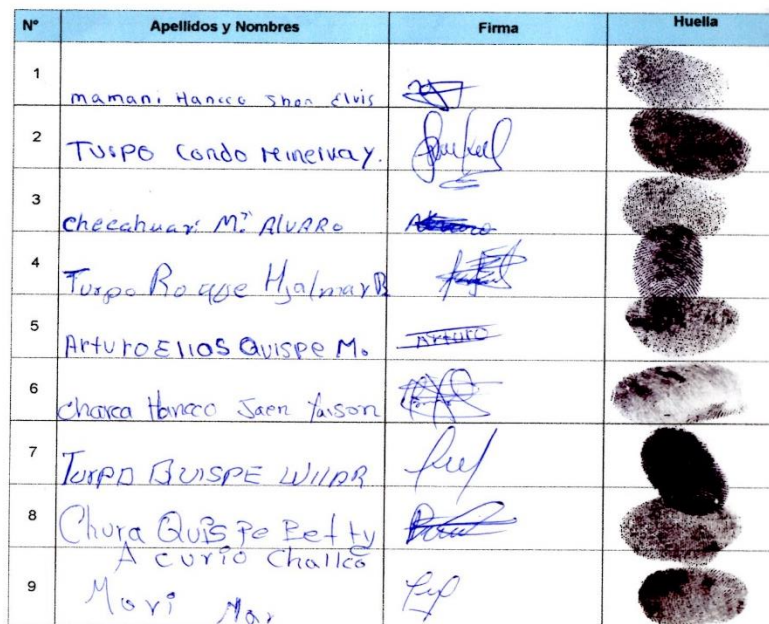 Nº Apellidos y Nombres Firma Huella
1 mamani Hancco Jhon Elvis
2 Turpo Condo Minerva Y.
3 checahuari M. ALVARO
4 Turpo Roque Hjalmar B
5 Arturo Elias Quispe M. Arturo
6 charca Hancco Jaen Yaison
7 Turpo QUISPE WILAR
8 Chura Quispe Betty
Acurio Challco
9 Mori Mar